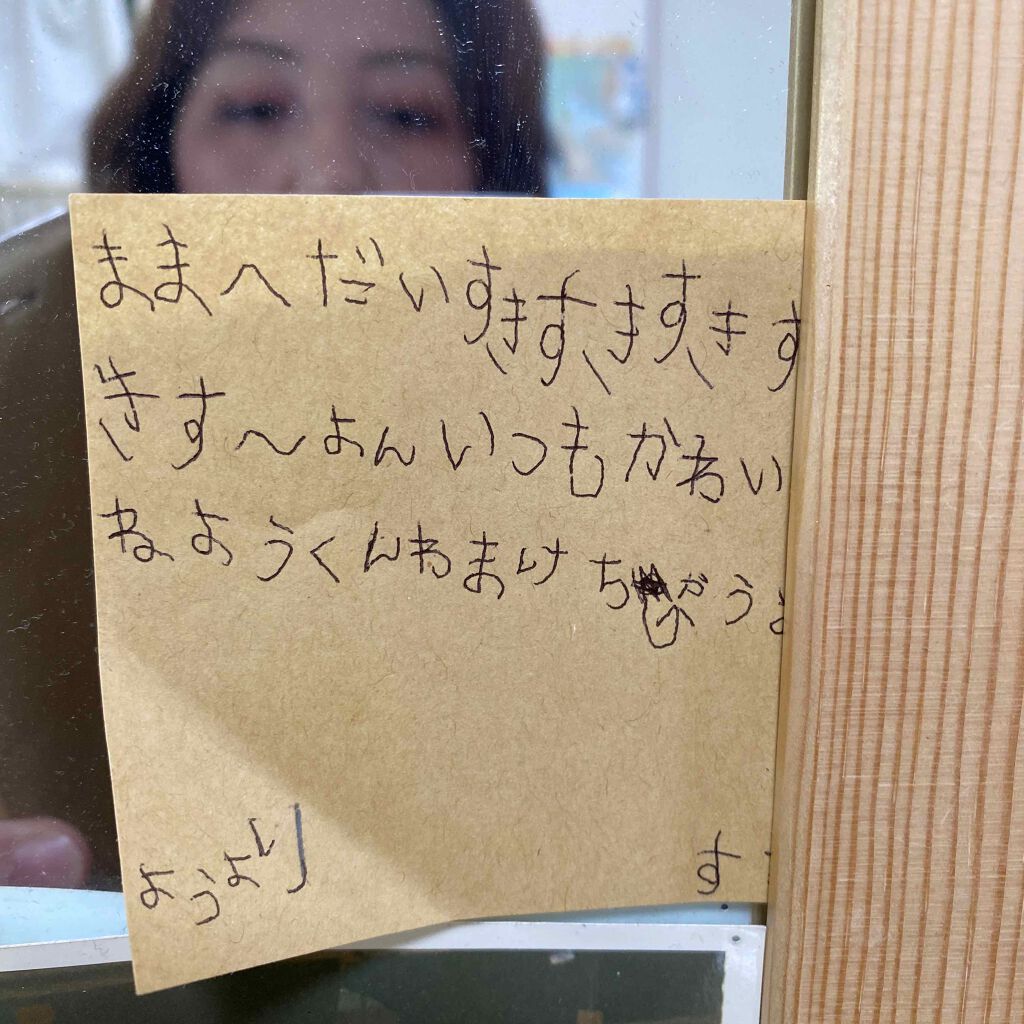 ままへだいすきすきすきす
きす〜よんいつもかわい
ねようくんわまけちがうよ
ようより
す